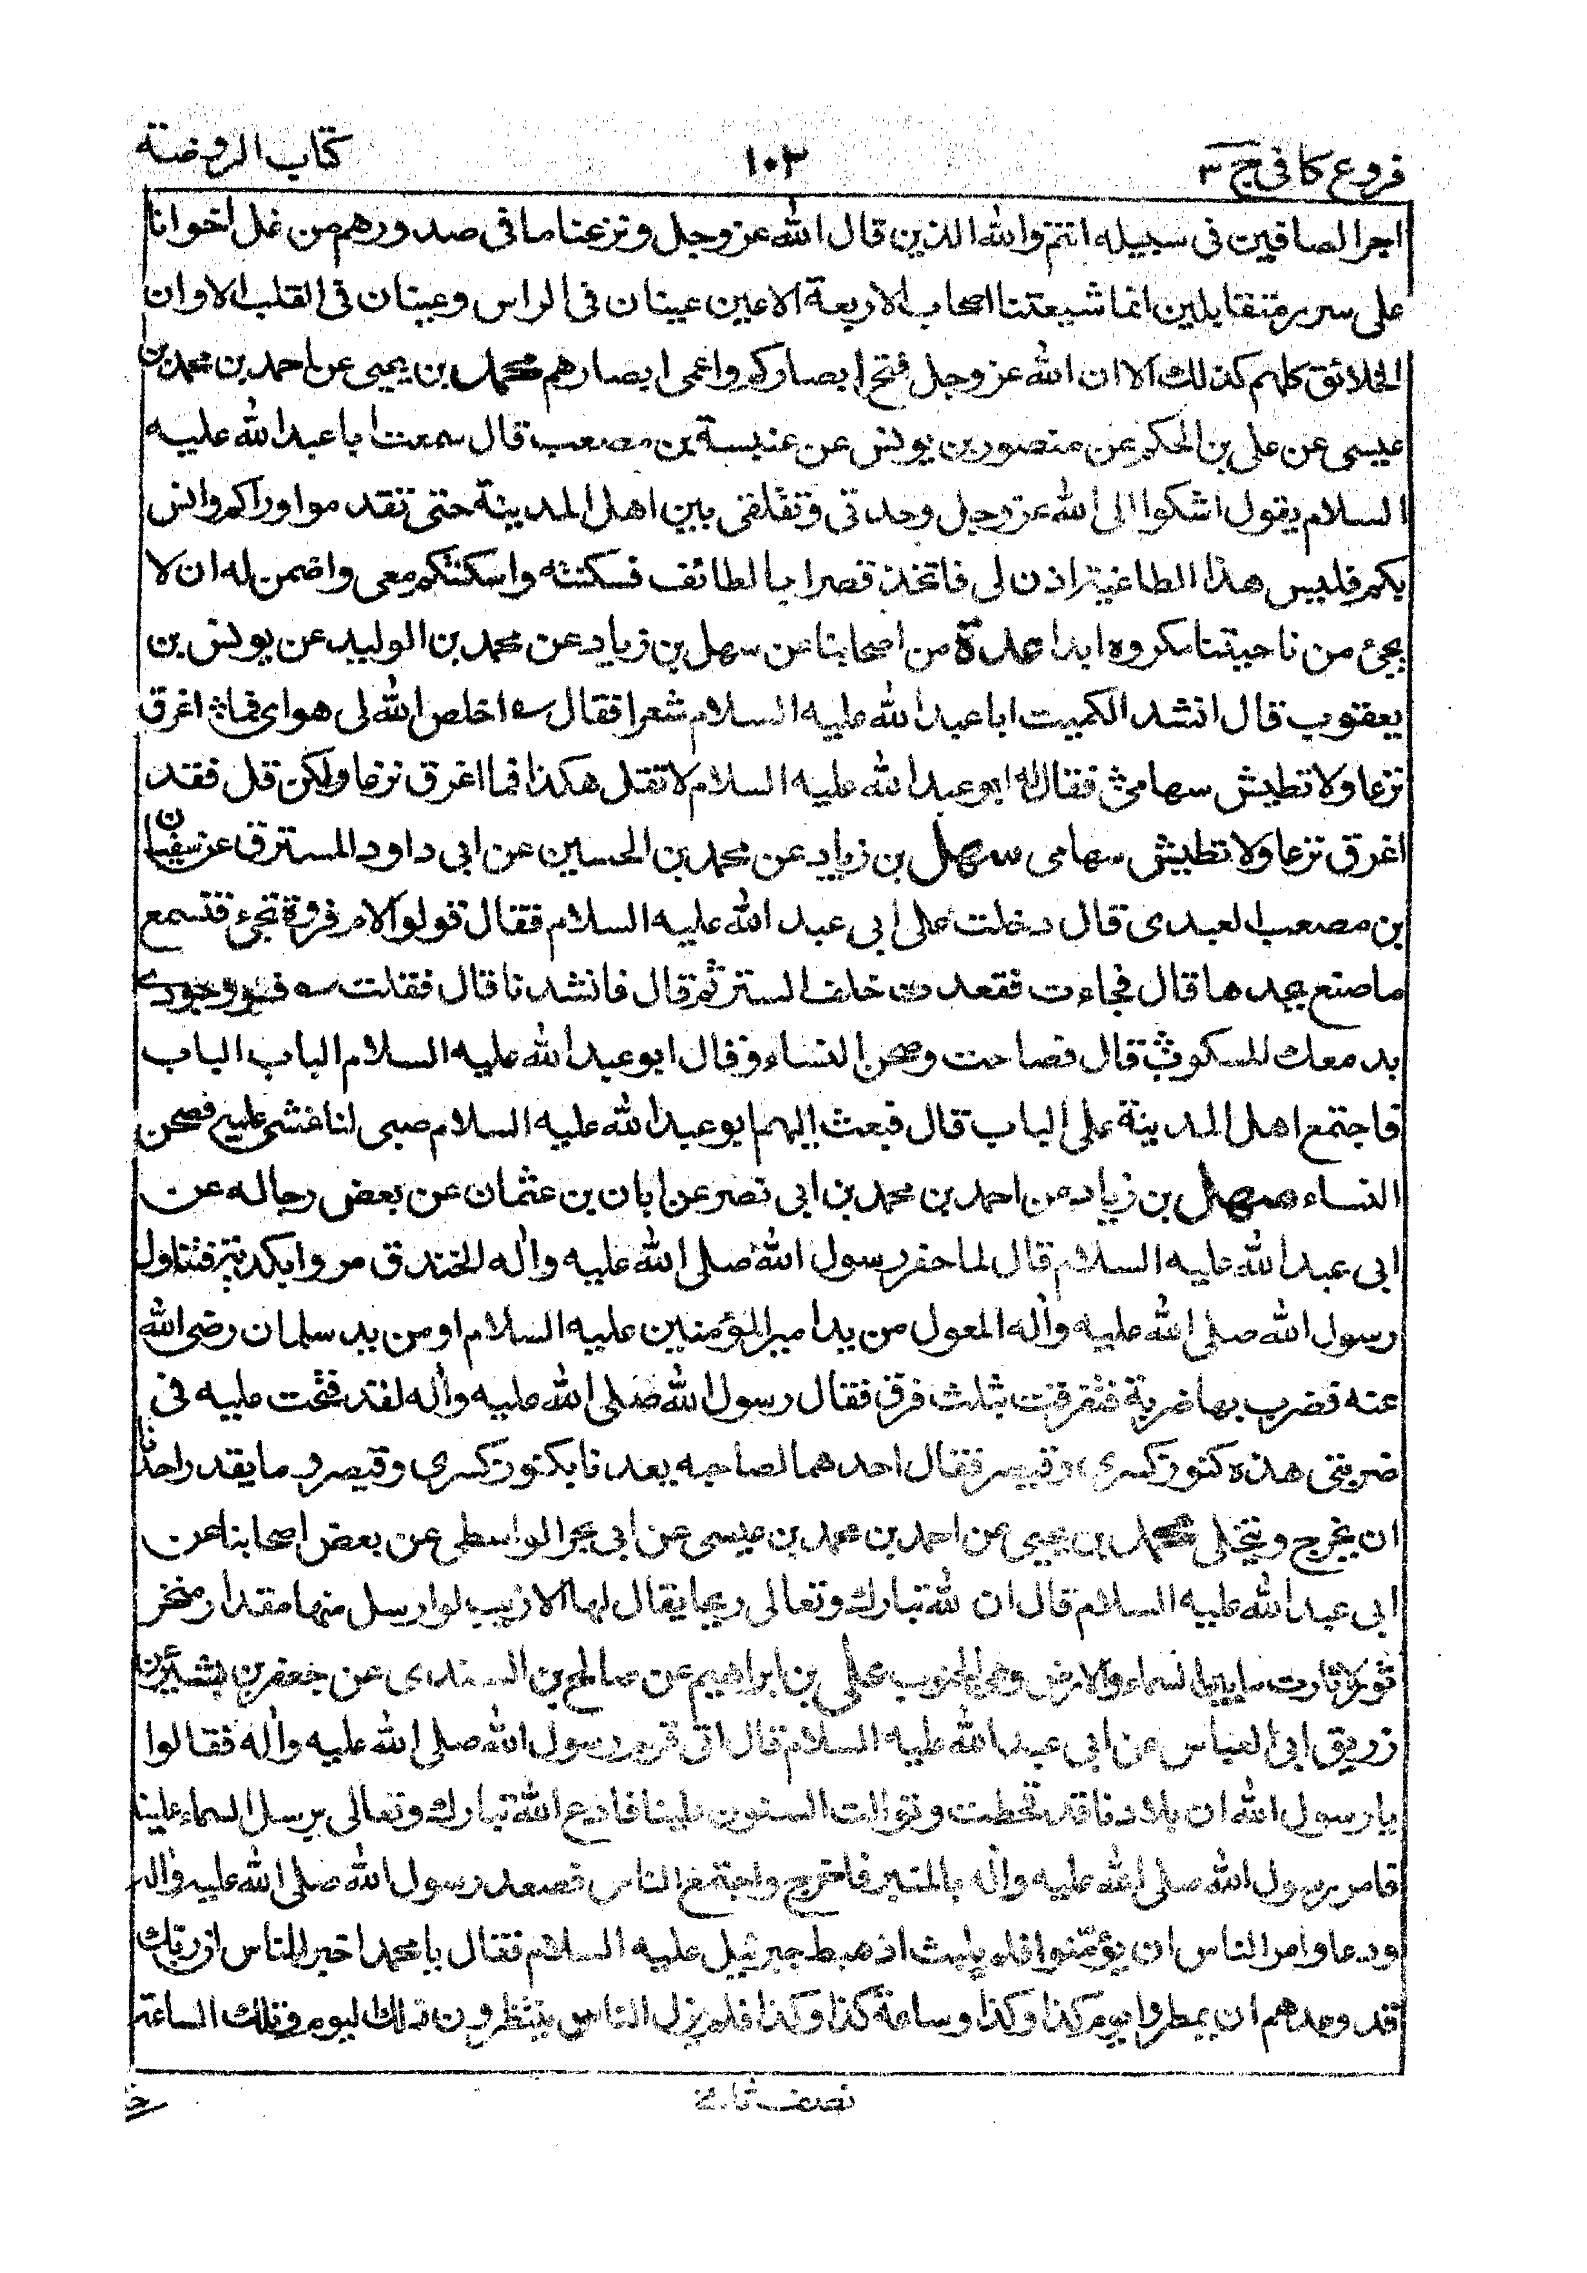 فروع كافى ج ٣
١٠٣
كتاب الروضة
اجر الصافين فى سبيله انتم والله الذين قال الله عز وجل ونزعنا ما فى صدورهم من غل اخوانا
على سرر متقابلين انما شيعتنا اصحاب الاربعة الاعين عينان فى الراس وعينان فى القلب الا وان
الخلائق كلهم كذلك الا ان الله عز وجل فتح ابصاركم واعمى ابصارهم محمد بن يحيى عن احمد بن محمد بن
عيسى عن على بن الحكم عن منصور بن يونس عن عنبسة بن مصعب قال سمعت ابا عبد الله عليه
السلام يقول اشكوا الى الله عز وجل وحدتى وتقلقى بين اهل المدينة حتى تقدموا واراكم وانس
بكم فليس هذا الطاغية اذن لى فاتخذ قصرا بالطائف فسكنته واسكنتكم معى واضمن له ان لا
يجئ من ناحيتنا مكروه ابدا عدة من اصحابنا عن سهل بن زياد عن محمد بن الوليد عن يونس بن
يعقوب قال انشد الكميت ابا عبد الله عليه السلام شعرا فقال اخلص الله لى هواى فما اغرق
نزعا ولا تطيش سهامى فقال له ابو عبد الله عليه السلام لا تقل هكذا فما اغرق نزعا ولكن قل فقد
اغرق نزعا ولا تطيش سهامى سهل بن زياد عن محمد بن الحسين عن ابى داود المسترق عن سفيان
بن مصعب العبدى قال دخلت على ابى عبد الله عليه السلام فقال قولوا لام فروة تجىء فتسمع
ما صنع بجدها قال فجاءت فقعدت خلف الستر ثم قال فانشدنا قال فقلت فرو جودى
بدمعك المسكوب قال فصاحت وصحن النساء وقال ابو عبد الله عليه السلام الباب الباب
فاجتمع اهل المدينة على الباب قال فبعث اليهم ابو عبد الله عليه السلام صبى لنا غشى عليه فصحن
النساء سهل بن زياد عن احمد بن محمد بن ابى نصر عن ابان بن عثمان عن بعض رجاله عن
ابى عبد الله عليه السلام قال لما حفر رسول الله صلى الله عليه واله الخندق مروا بكدية فتناول
رسول الله صلى الله عليه واله المعول من يد امير المؤمنين عليه السلام او من يد سلمان رضى الله
عنه فضرب بها ضربة فتفرقت بثلث فرق فقال رسول الله صلى الله عليه واله لقد فتحت عليه فى
ضربتى هذه كنوز كسرى وقيصر فقال احدهما لصاحبه يعدنا بكنوز كسرى وقيصر وما يقدر احدنا
ان يخرج ويتخلى محمد بن يحيى عن احمد بن محمد بن عيسى عن ابى يحيى الواسطى عن بعض اصحابنا عن
ابى عبد الله عليه السلام قال ان لله تبارك وتعالى ريحا يقال لها الازيب لو ارسل منها مقدار منخر
ثور لاثارت ما بين السماء والارض وهى الجنوب على بن ابراهيم عن صالح بن السندى عن جعفر بن بشير عن
زريق ابى العباس عن ابى عبد الله عليه السلام قال اتى قوم رسول الله صلى الله عليه واله فقالوا
يا رسول الله ان بلادنا قد قحطت وتوالت السنون علينا فادع الله تبارك وتعالى يرسل السماء علينا
فامر رسول الله صلى الله عليه واله بالمنبر فاخرج واجتمع الناس فصعد رسول الله صلى الله عليه واله
ودعا وامر الناس ان يؤمنوا فلم يلبث اذ هبط جبرئيل عليه السلام فقال يا محمد اخبر الناس ان ربك
قد وعدهم ان يمطروا يوم كذا وكذا وساعة كذا وكذا فلم يزل الناس ينتظرون ذلك ليوم وتلك الساعة